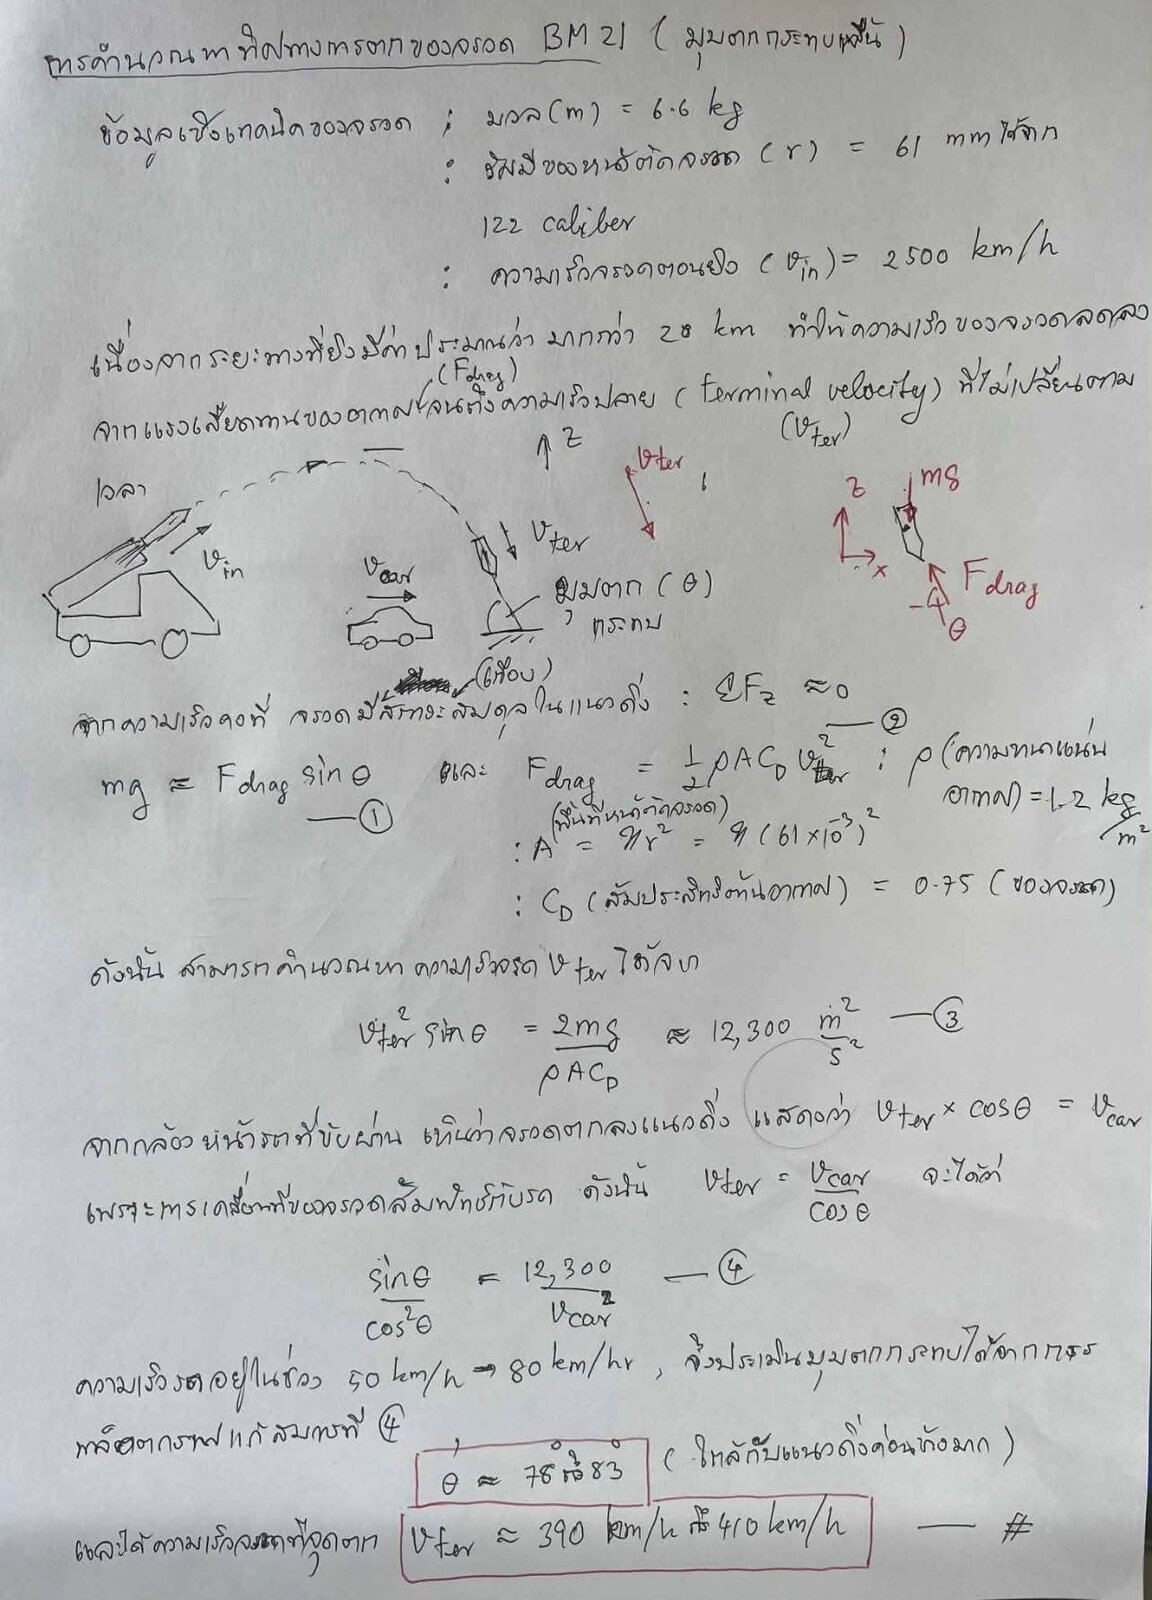 การคำนวณหาทิศทางการตกของจรวด BM 21 (มุมตกกระทบพื้น)
ข้อมูลเชิงเทคนิคของจรวด : มวล (m) = 6.6 kg
: รัศมีของหน้าตัดจรวด (r) = 61 mm ได้จาก
122 caliber
: ความเร็วจรวดตอนยิง (v_in) = 2500 km/h
เนื่องจากระยะทางที่ยิงมีค่าประมาณว่า มากกว่า 20 km ทำให้ความเร็วของจรวดลดลง
(F_drag)
จากแรงเสียดทานของอากาศ จนถึงความเร็วปลาย (terminal velocity) ที่ไม่เปลี่ยนตาม
(v_ter)
เวลา
z
v_ter
mg
z
v_ter
v_in
v_car
x
F_drag
มุมตก (θ)
กระทบ
θ
(เกือบ)
จากความเร็วคงที่ จรวดมีสภาวะสมดุลในแนวดิ่ง : ΣF_z ≈ 0
— ②
mg ≈ F_drag sin θ และ F_drag = 1/2 ρ A C_D v_ter² : ρ (ความหนาแน่น
— ①
อากาศ) = 1.2 kg/m²
(พื้นที่หน้าตัดจรวด)
: A = πr² = π (61 × 10⁻³)²
: C_D (สัมประสิทธิ์ต้านอากาศ) = 0.75 (ของจรวด)
ดังนั้น สามารถคำนวณหา ความเร็วจรวด v_ter ได้จาก
v_ter² sin θ = 2mg / ρAC_D ≈ 12,300 m²/s² — ③
จากกล้องหน้ารถที่ขับผ่าน เห็นว่าจรวดตกลงแนวดิ่ง แสดงว่า v_ter × cos θ = v_car
เพราะการเคลื่อนที่ของจรวดสัมพัทธ์กับรถ ดังนั้น v_ter = v_car / cos θ จะได้ว่า
sin θ / cos² θ = 12,300 / v_car² — ④
ความเร็วรถอยู่ในช่วง 50 km/h → 80 km/hr, จึงประเมินมุมตกกระทบได้จากการ
พล็อตกราฟแก้สมการที่ ④
θ ≈ 78° ถึง 83° (ใกล้กับแนวดิ่งค่อนข้างมาก)
และได้ความเร็วจรวดที่จุดตก v_ter ≈ 390 km/h ถึง 410 km/h — #